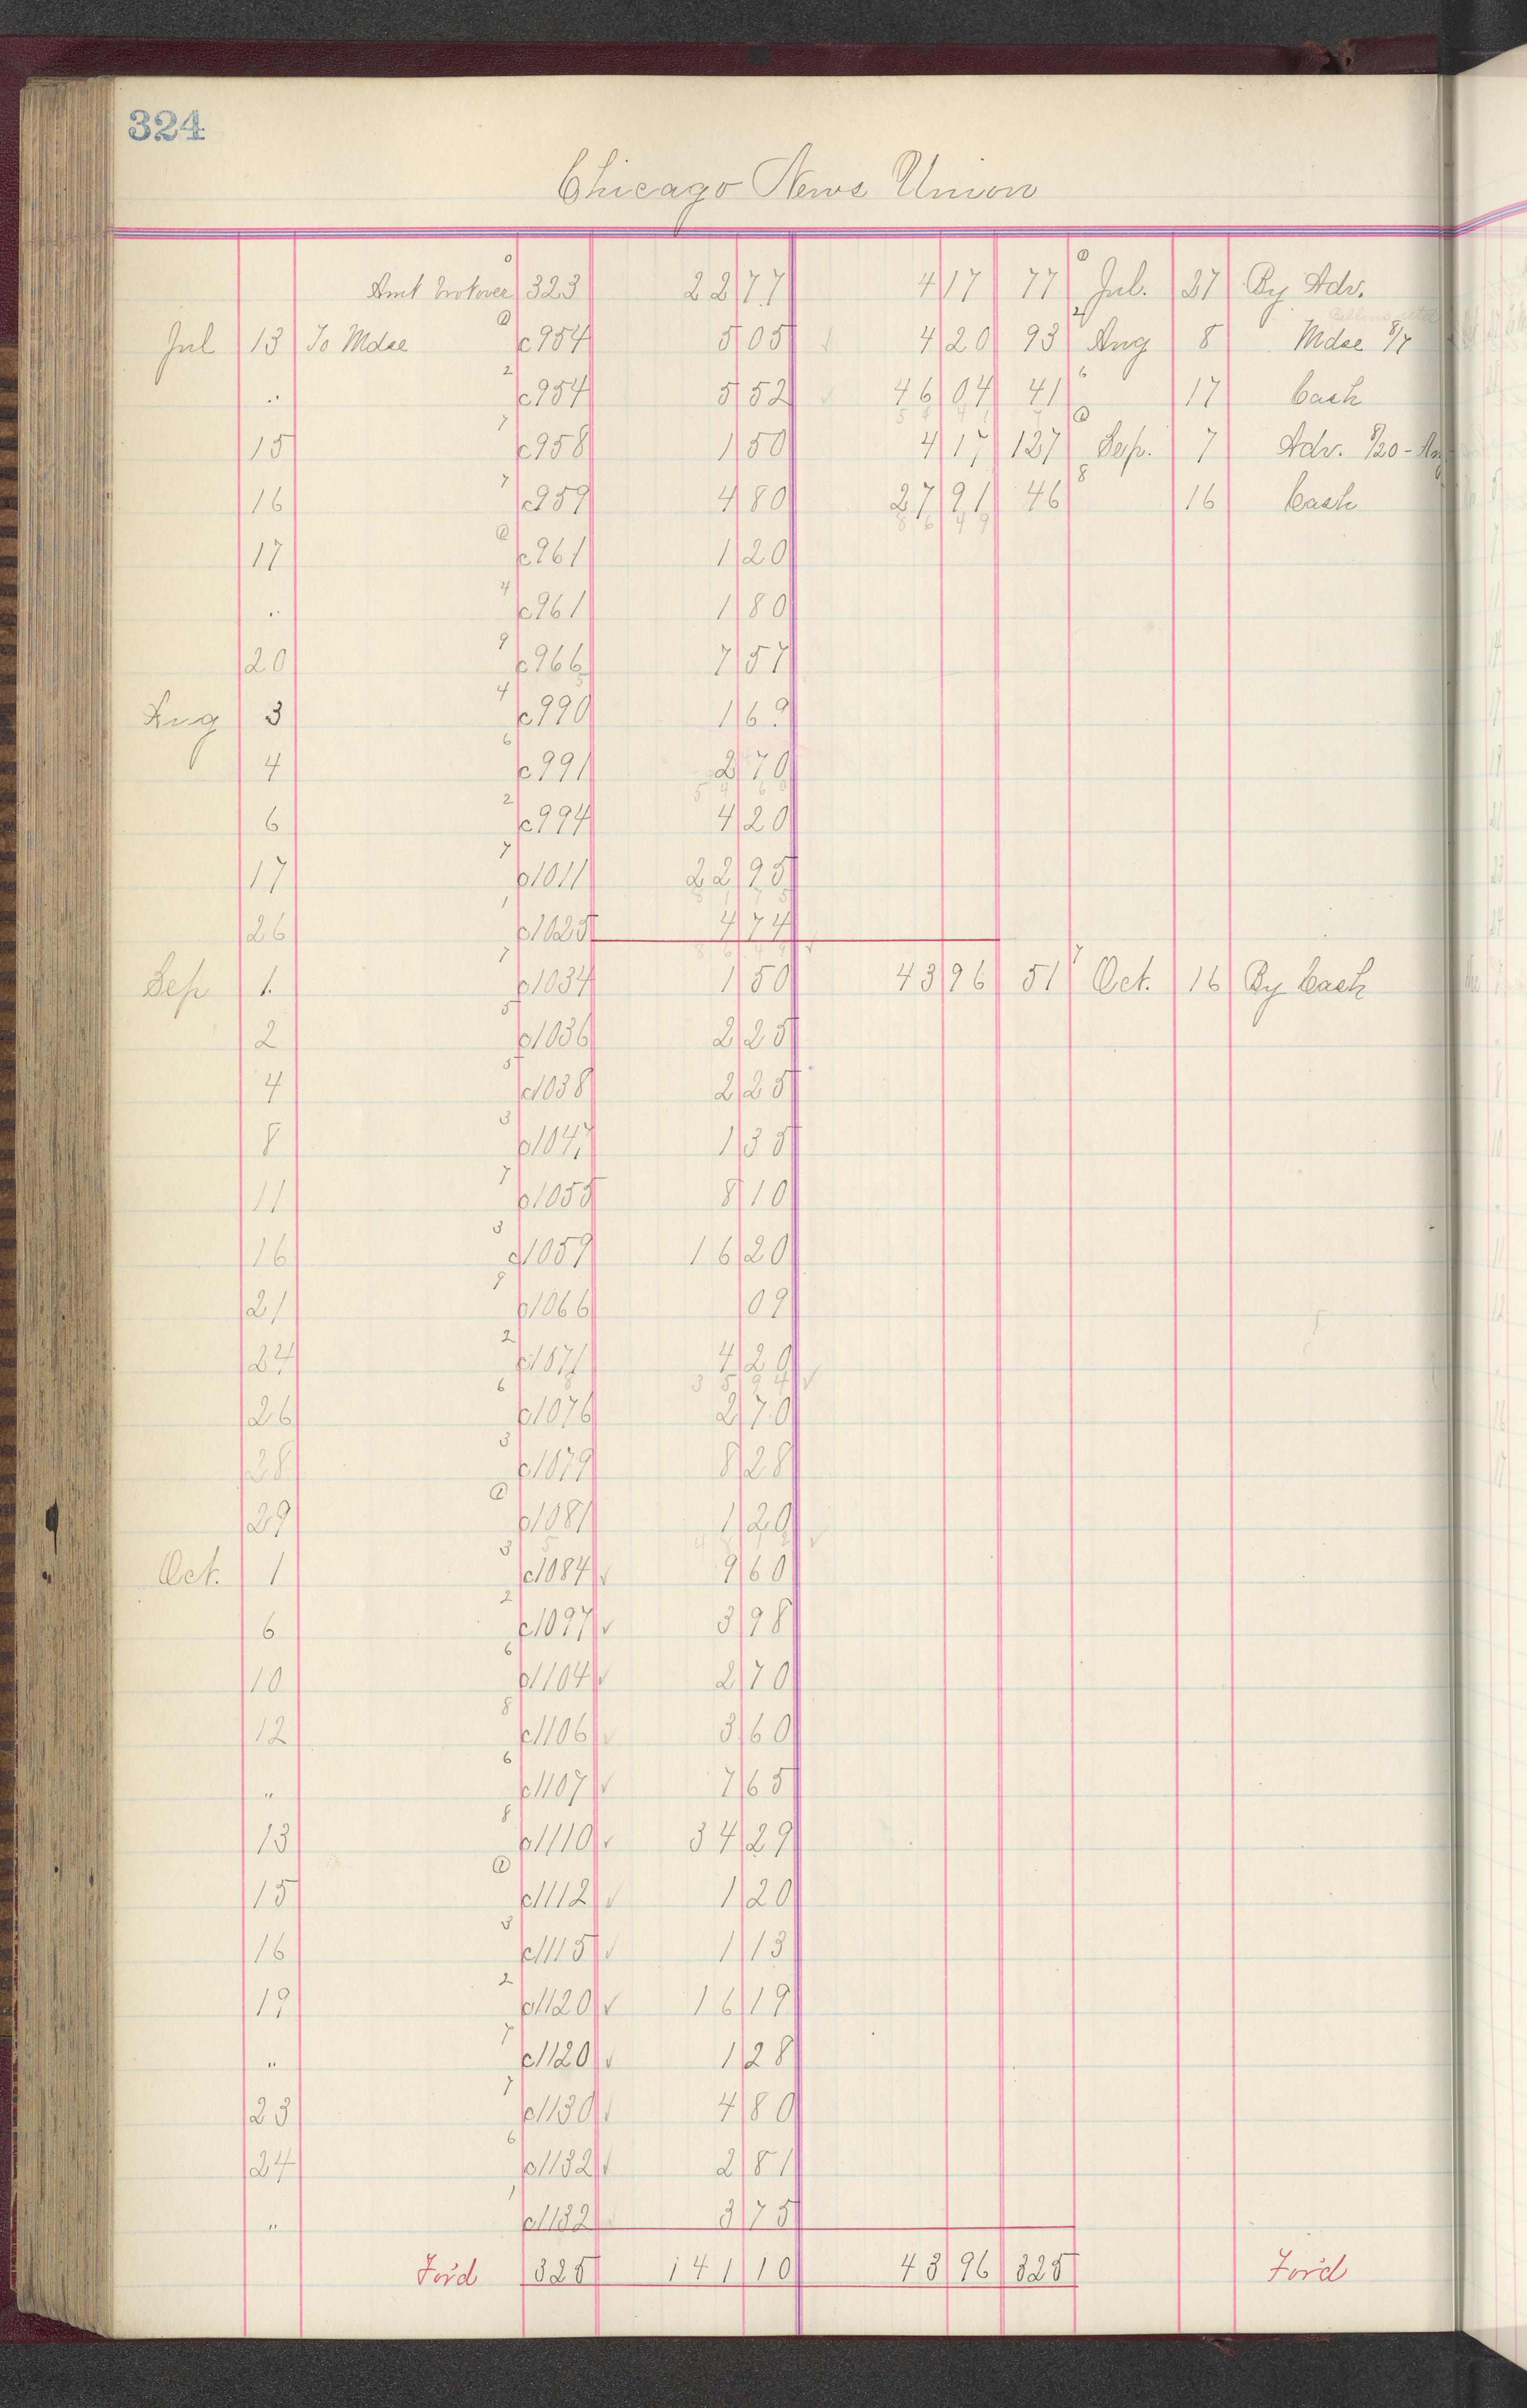 324
Chicago News Union
Amt Brotover 323 22 77 4 17 77 Jul. 27 By Adv.
Jul 13 To Mdse c954 5 05 4 20 93 Aug 8 Mdse 8/7
" c954 5 52 46 04 41 17 Cash
15 c958 1 50 4 17 127 Sep. 7 Adv. 8/20 -
16 c959 4 80 27 91 46 16 Cash
17 c961 1 20
" c961 1 80
20 c966 7 57
Aug 3 c990 1 69
4 c991 2 70
6 c994 4 20
17 c1011 22 95
26 c1025 4 74
Sep 1 c1034 1 50 43 96 51 Oct. 16 By Cash
2 c1036 2 25
4 c1038 2 25
8 c1047 1 35
11 c1055 8 10
16 c1059 16 20
21 c1066 09
24 c1071 4 20
26 c1076 2 70
28 c1079 8 28
29 c1081 1 20
Oct. 1 c1084 9 60
6 c1097 3 98
10 c1104 2 70
12 c1106 3 60
" c1107 7 65
13 c1110 34 29
15 c1112 1 20
16 c1115 1 13
19 c1120 16 19
" c1120 1 28
23 c1130 4 80
24 c1132 2 81
" c1132 3 75
For'd 325 141 10 43 96 325 For'd